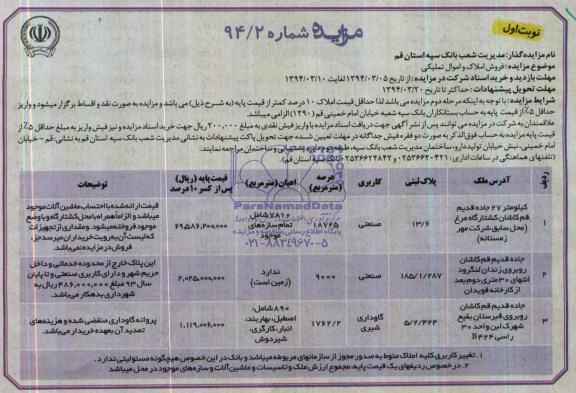 نوبت اول
مزایده شماره ۹۴/۲
نام مزایده گذار: مدیریت شعب بانک سپه استان قم
موضوع مزایده: فروش املاک و اموال تملیکی
مهلت بازدید و خرید اسناد شرکت در مزایده: از تاریخ ۱۳۹۴/۰۳/۰۵ لغایت ۱۳۹۴/۰۳/۱۰
مهلت تحویل پیشنهادات: حداکثر تا تاریخ ۱۳۹۴/۰۳/۲۰
شرایط مزایده: با توجه به اینکه مرحله دوم مزایده می باشد لذا حداقل قیمت املاک ۱۰ درصد کمتر از قیمت پایه (به شرح ذیل) می باشد و مزایده به صورت نقد و اقساط برگزار میشود و واریز
حداقل ۵٪ از قیمت پایه به حساب بستانکاران بانک سپه شعبه خیابان امام خمینی قم (۱۳۹۰) الزامی میباشد.
علاقمندان به شرکت در مزایده می توانند پس از نشر آگهی جهت دریافت اسناد مزایده با واریز فیش نقدی به مبلغ ۲۰۰,۰۰۰ ریال جهت خرید اسناد مزایده و نیز فیش واریز به مبلغ حداقل ۵٪ از
قیمت پایه مزایده به حساب فوق الذکر به صورت دو فقره فیش جداگانه در مهلت تعیین شده جهت تحویل پاکت پیشنهادات به نشانی مدیریت شعب بانک سپه استان قم به نشانی: قم - خیابان
امام خمینی، نبش خیابان تولیددارو، ساختمان مدیریت شعب بانک سپه، طبقه دوم، دایره پشتیبانی و ساختمان مراجعه نمایند.
(تلفنهای هماهنگی در ساعات اداری: ۰۲۵۳۶۶۲۰۴۲۱ - ۰۲۵۳۶۶۲۴۸۴۲ بانک سپه استان قم).
ردیف آدرس ملک پلاک ثبتی کاربری عرصه (مترمربع) اعیان (مترمربع) قیمت پایه (ریال) پس از کسر ۱۰ درصد توضیحات
۱ کیلومتر ۲۷ جاده قدیم قم کاشان کشتارگاه مرغ (محل سابق شرکت مهر زمستانه) ۱۳/۶ صنعتی ۱۸۷۲۵ ۷۸۱۶ شامل تمام سازه های موجود ۶۹,۵۸۶,۲۰۰,۰۰۰ قیمت ارائه شده با احتساب ماشین آلات موجود میباشد و الزاماً همراه با محل کشتارگاه و با وضع موجود فروخته میشود. و مقداری از تجهیزات که لیست آن به رویت خریداران میرسد جزء فروش در مزایده نمی باشد.
۲ جاده قدیم قم کاشان روبروی زندان لنگرود انتهای ۳۰ متری دوم بعد از کارخانه فویدان ۱۸۵/۱/۲۸۷ صنعتی ۹۰۰۰ ندارد (زمین است) ۲,۰۲۵,۰۰۰,۰۰۰ این پلاک خارج از محدوده خدماتی و داخل حریم شهر و دارای کاربری صنعتی و تا پایان سال ۹۳ مبلغ ۴۸۶,۰۰۰,۰۰۰ ریال به شهرداری بدهکار می باشد.
۳ جاده قدیم قم کاشان روبروی قبرستان بقیع شهرک لبن واحد ۳۰ راسی B۴۲۴ ۵/۲/۴۲۴ گاوداری شیری ۱۷۶۲/۲ ۸۹۰ شامل: اصطبل، بهاربند، انبار، کارگری، شیردوش ۱,۱۱۹,۰۰۶,۰۰۰ پروانه گاوداری منقضی شده و هزینه های تمدید آن بعهده خریدار می باشد.
۱. تغییر کاربری کلیه املاک منوط به صدور مجوز از سازمانهای مربوطه میباشد و بانک در این خصوص هیچگونه مسئولیتی ندارد.
۲. در خصوص ردیفهای یک قیمت پایه، مجموع ارزش ملک و تاسیسات و ماشین آلات و سازه های موجود در محل میباشد
ParsNamadData
پایگاه اطلاع رسانی مناقصه و مزایده
۰۲۱-۸۸۳۴۹۶۷۰-۵